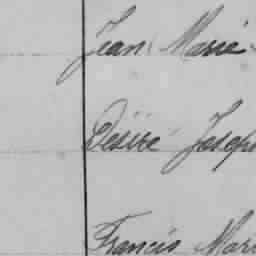 Jean Marie
Désiré Joseph
Francis Mari